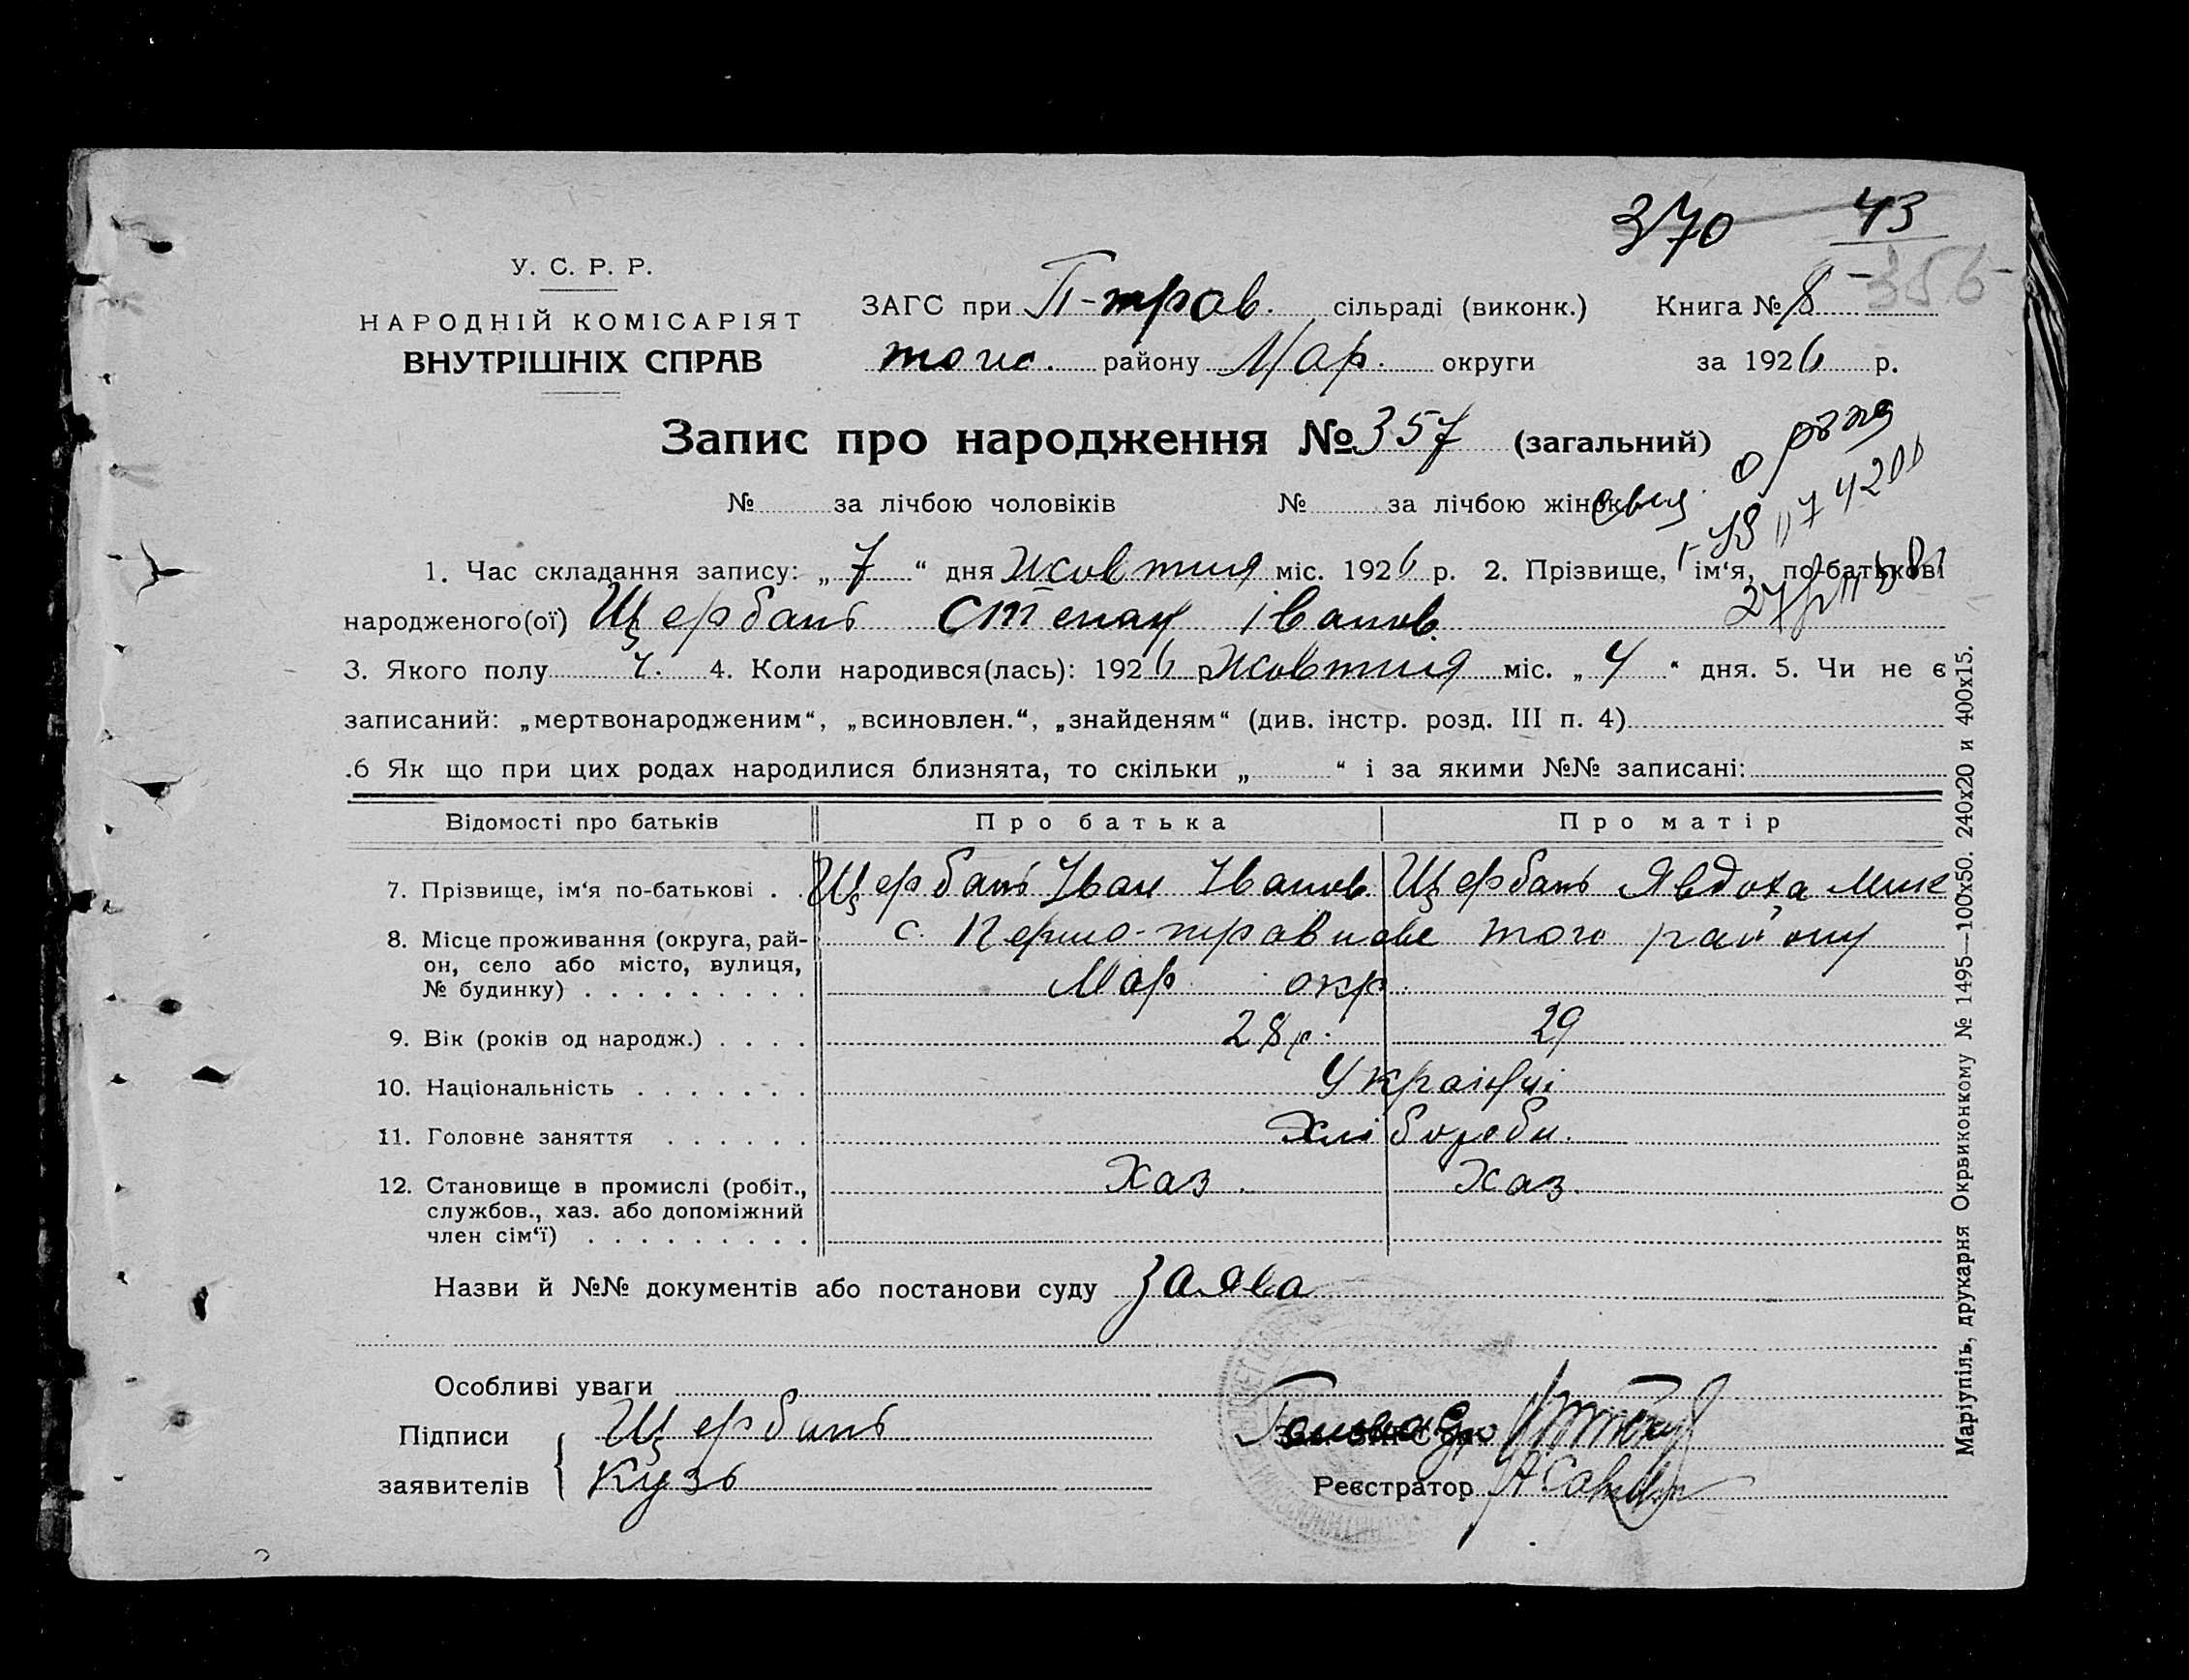 370 43
356
У. С. Р. Р.
НАРОДНІЙ КОМІСАРІЯТ
ВНУТРІШНІХ СПРАВ
ЗАГС при П-трав. сільраді (виконк.) Книга № 8
того. району Мар. округи за 1926 р.
Запис про народження № 357 (загальний)
№ за лічбою чоловіків № за лічбою жінок
1. Час складання запису: „7“ дня Жовтня міс. 1926 р. 2. Прізвище, ім‘я, по-батькові
народженого(ої) Щербань Степан Іванов.
3. Якого полу ч. 4. Коли народився(лась): 1926 р Жовтня міс. „4“ дня. 5. Чи не є
записаний: „мертвонародженим“, „всиновлен.“, „знайденям“ (див. інстр. розд. III п. 4)
.6 Як що при цих родах народилися близнята, то скільки „ “ і за якими №№ записані:
Відомості про батьків Про батька Про матір
7. Прізвище, ім‘я по-батькові . . Щербань Іван Іванов. Щербань Явдоха Мик
8. Місце проживання (округа, рай- с. Першо-травневе того району
он, село або місто, вулиця, Мар. окр.
№ будинку) . . . . . . . . .
9. Вік (років од народж.) . . . . 28 р. 29
10. Національність . . . . . . . Українці
11. Головне заняття . . . . . . Хлібороби.
12. Становище в промислі (робіт., Хаз. Хаз.
службов., хаз. або допоміжний
член сім‘ї) . . . . . . . . .
Назви й №№ документів або постанови суду Заява
Особливі уваги
Підписи Щербань
заявителів Кузь
Реєстратор
Маріупіль, друкарня Окрвиконкому № 1495—100х50. 240х20 и 400х15.